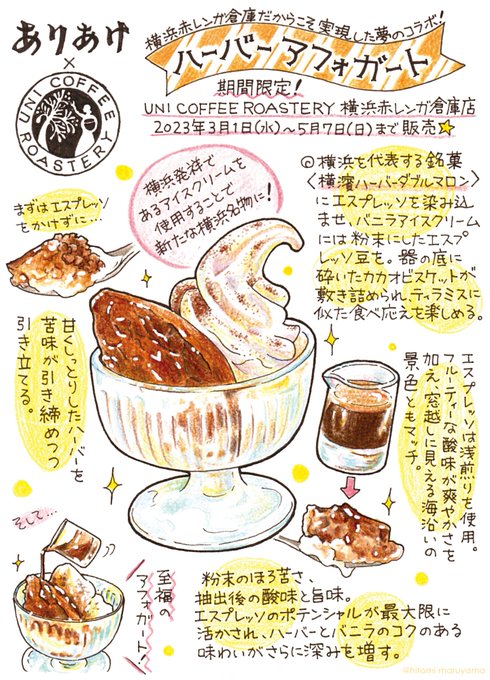 ありあけ
×
UNI COFFEE ROASTERY
横浜赤レンガ倉庫だからこそ実現した夢のコラボ!
ハーバーアフォガート
期間限定!
UNI COFFEE ROASTERY 横浜赤レンガ倉庫店
2023年3月1日(水)～5月7日(日)まで販売
横浜発祥で
あるアイスクリームを
使用することで
新たな横浜名物に!
横浜を代表する銘菓
〈横濱ハーバーダブルマロン〉
にエスプレッソを染み込
ませ、バニラアイスクリーム
には粉末にしたエスプ
レッソ豆を。器の底に
砕いたカカオビスケットが
敷き詰められ、ティラミスに
似た食べ応えを楽しめる。
まずはエスプレッソ
をかけずに…
甘くしっとりしたハーバーを
苦味が引き締めつつ
引き立てる。
エスプレッソは浅煎りを使用。
フルーティーな酸味が爽やかさを
加え、窓越しに見える海沿いの
景色ともマッチ。
そして…
至福の
アフォガート!
粉末のほろ苦さ、
抽出後の酸味と旨味。
エスプレッソのポテンシャルが最大限に
活かされ、ハーバーとバニラのコクのある
味わいがさらに深みを増す。
@hitomi maruyama